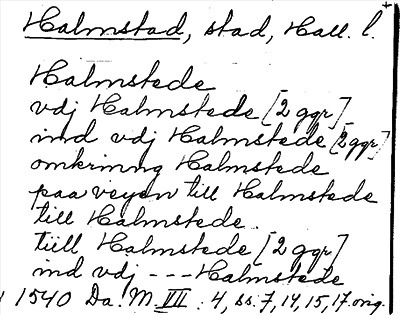 Halmstad, stad, Hall. l.
Halmstede
vdj Halmstede [2 ggr]
ind vdj Halmstede [2 ggr]
omkrinng Halmstede
paa veyen till Halmstede
till Halmstede.
tiill Halmstede [2 ggr]
ind vdj --- Halmstede
1540 Da. M. VII: 4, ss. 7, 14, 15, 17. orig.